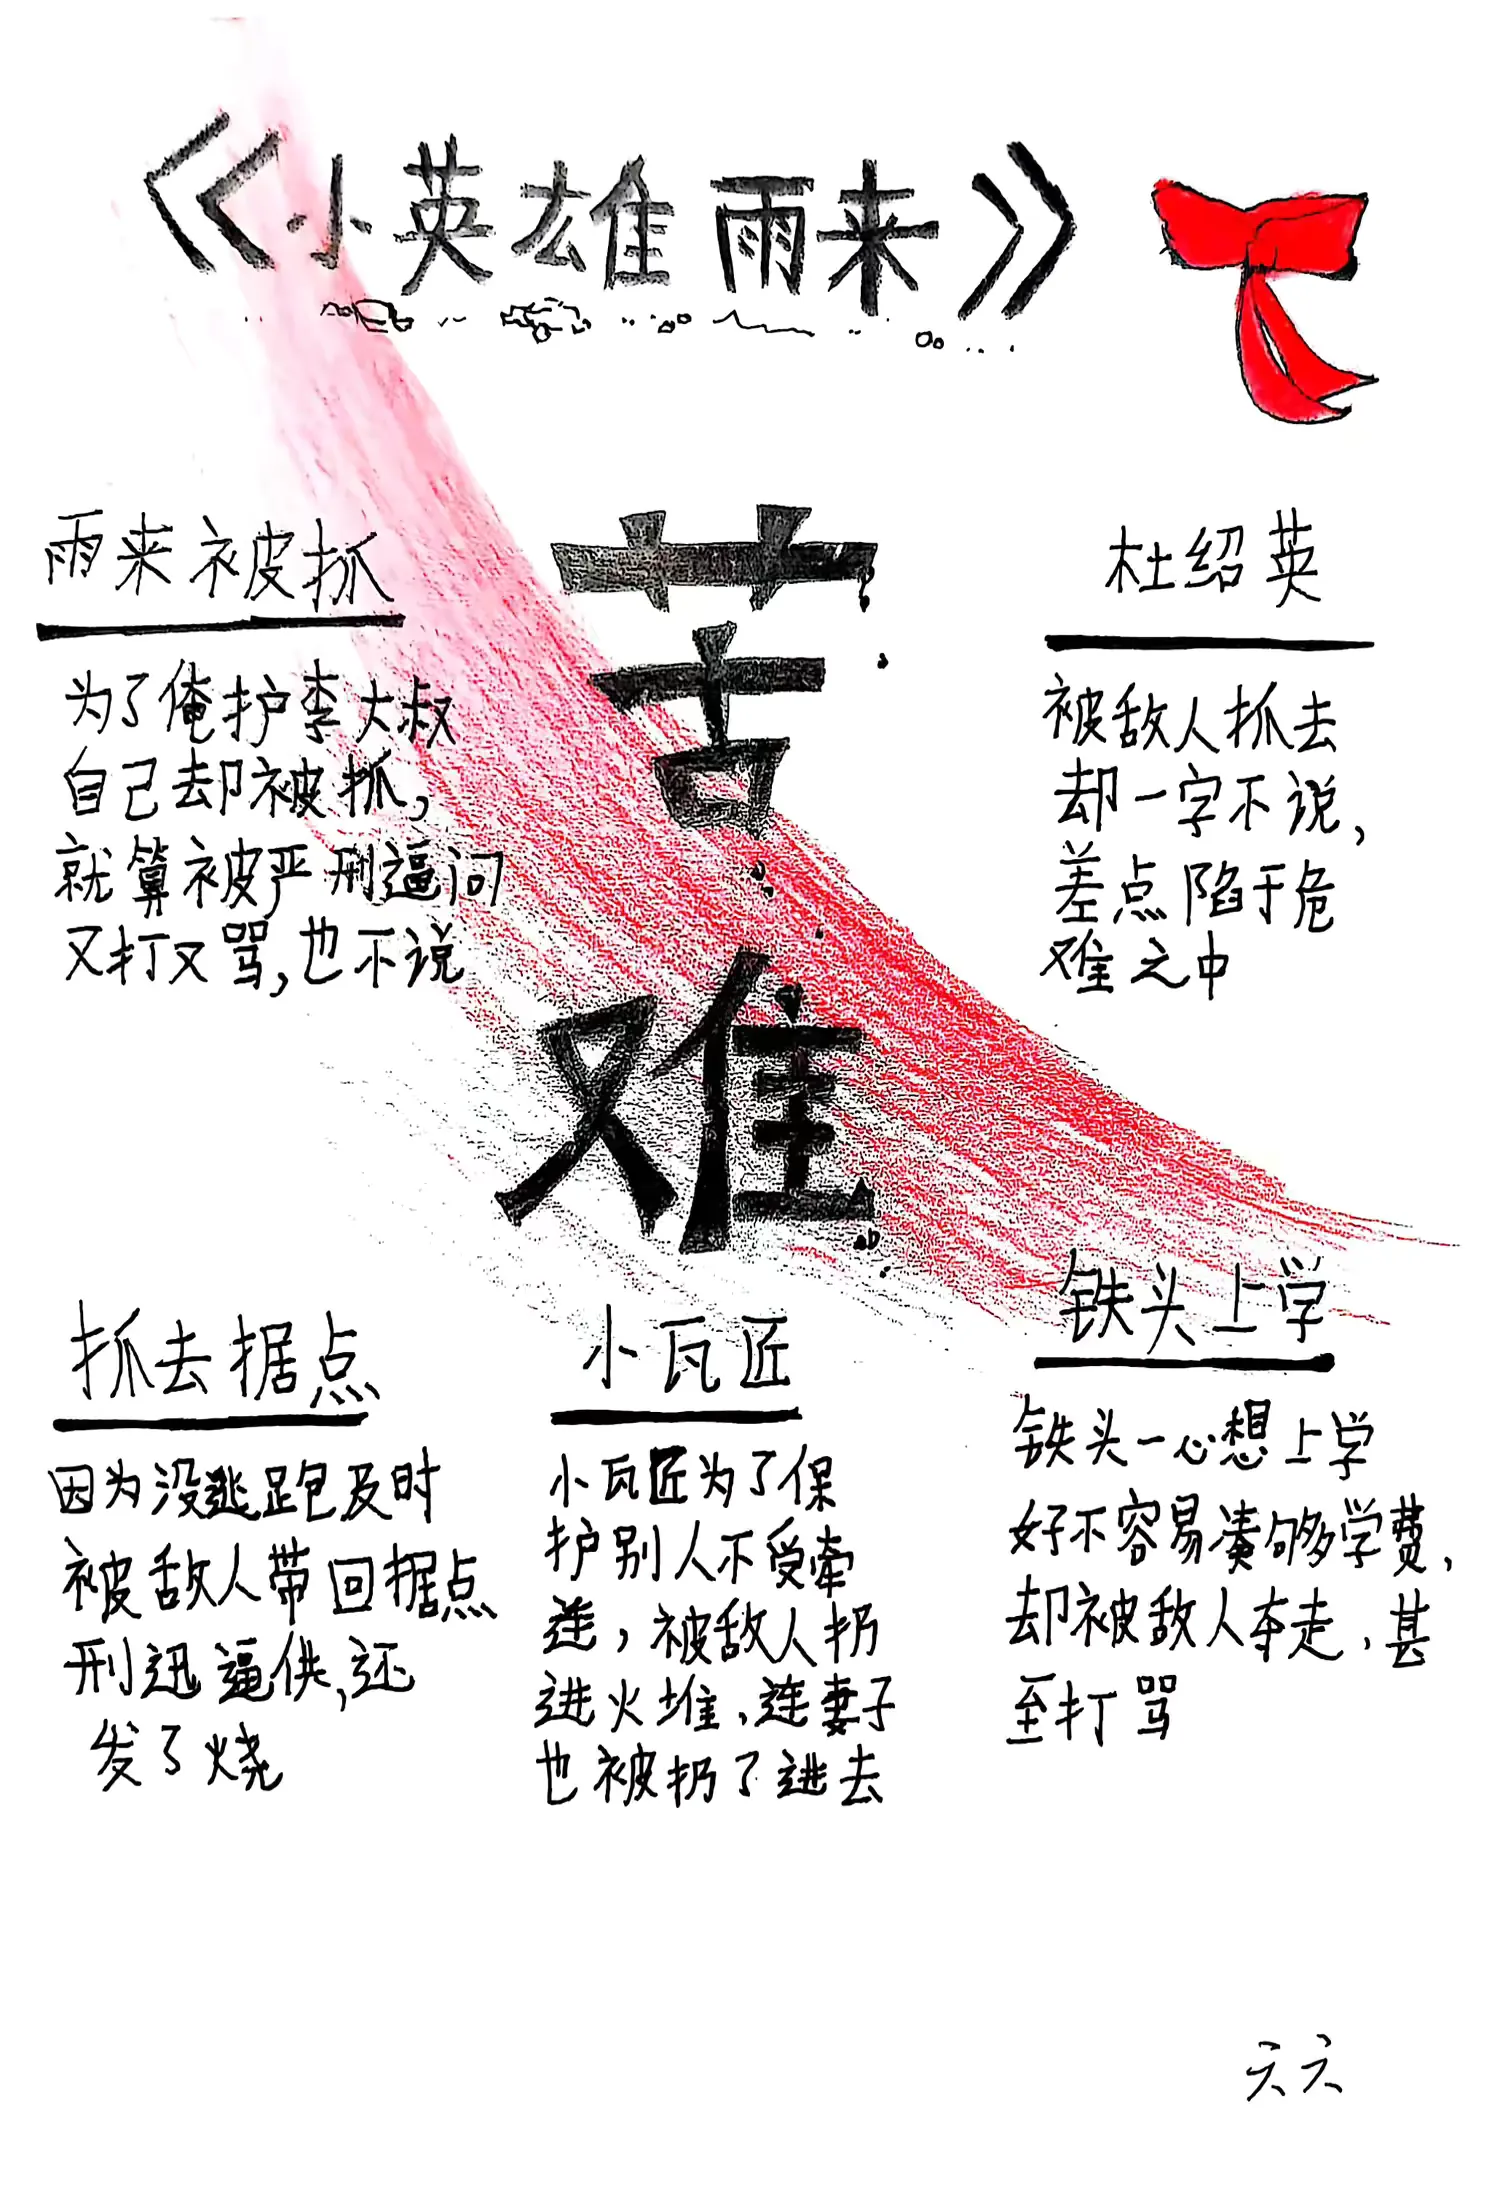 《小英雄雨来》
苦
难
雨来被抓
为了俺护李大叔
自己却被抓,
就算被严刑逼问
又打又骂,也不说
杜绍英
被敌人抓去
却一字不说,
差点陷于危
难之中
抓去据点
因为没逃跑及时
被敌人带回据点
刑迅逼供,还
发了烧
小瓦匠
小瓦匠为了保
护别人不受牵
连,被敌人扔
进火堆、连妻子
也被扔了进去
铁头上学
铁头一心想上学
好不容易凑够学费,
却被敌人夺走,甚
至打骂